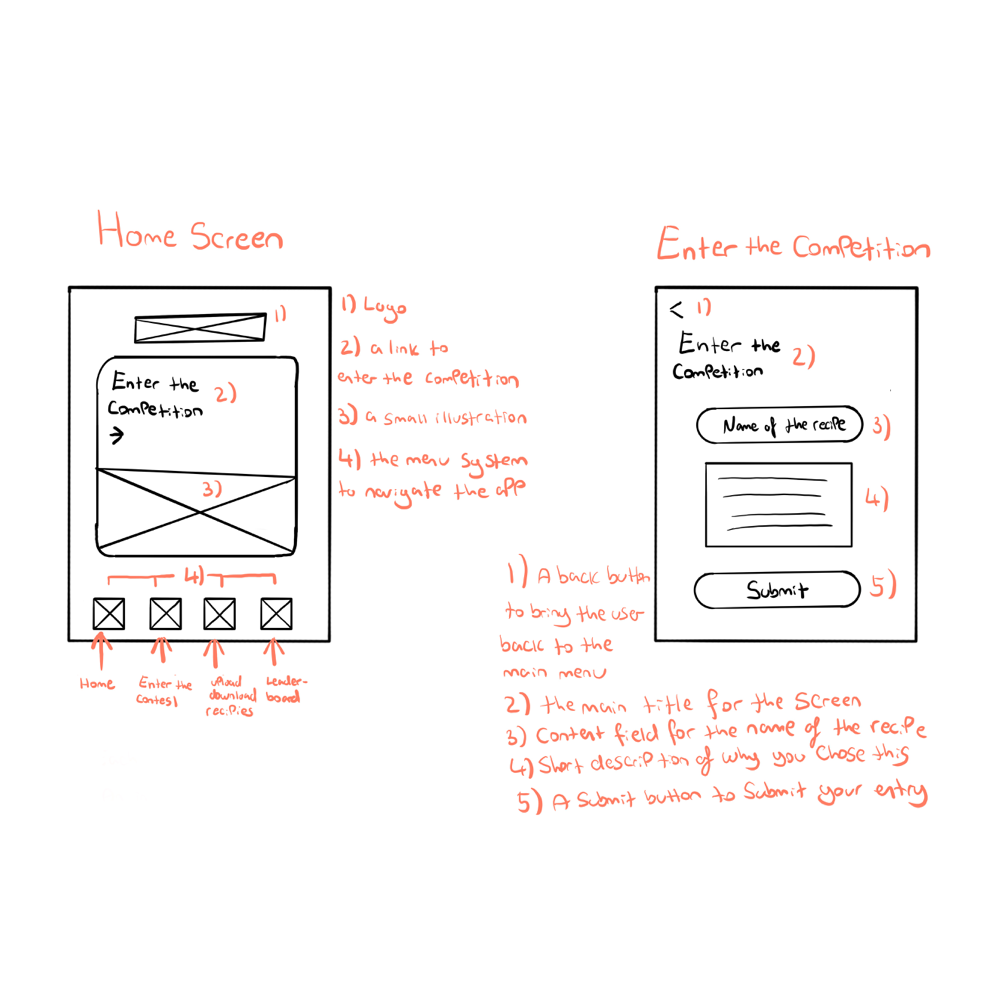 Home Screen
1)
Enter the
Competition
2)
3)
4)
Home
Enter the
Contest
upload
download
recipies
Leader-
board
1) Logo
2) a link to
enter the competition
3) a small illustration
4) the menu system
to navigate the app
Enter the Competition
< 1)
Enter the
Competition
2)
Name of the recipe
3)
4)
Submit
5)
1) A back button
to bring the user
back to the
main menu
2) the main title for the screen
3) Content field for the name of the recipe
4) Short description of why you chose this
5) A submit button to submit your entry